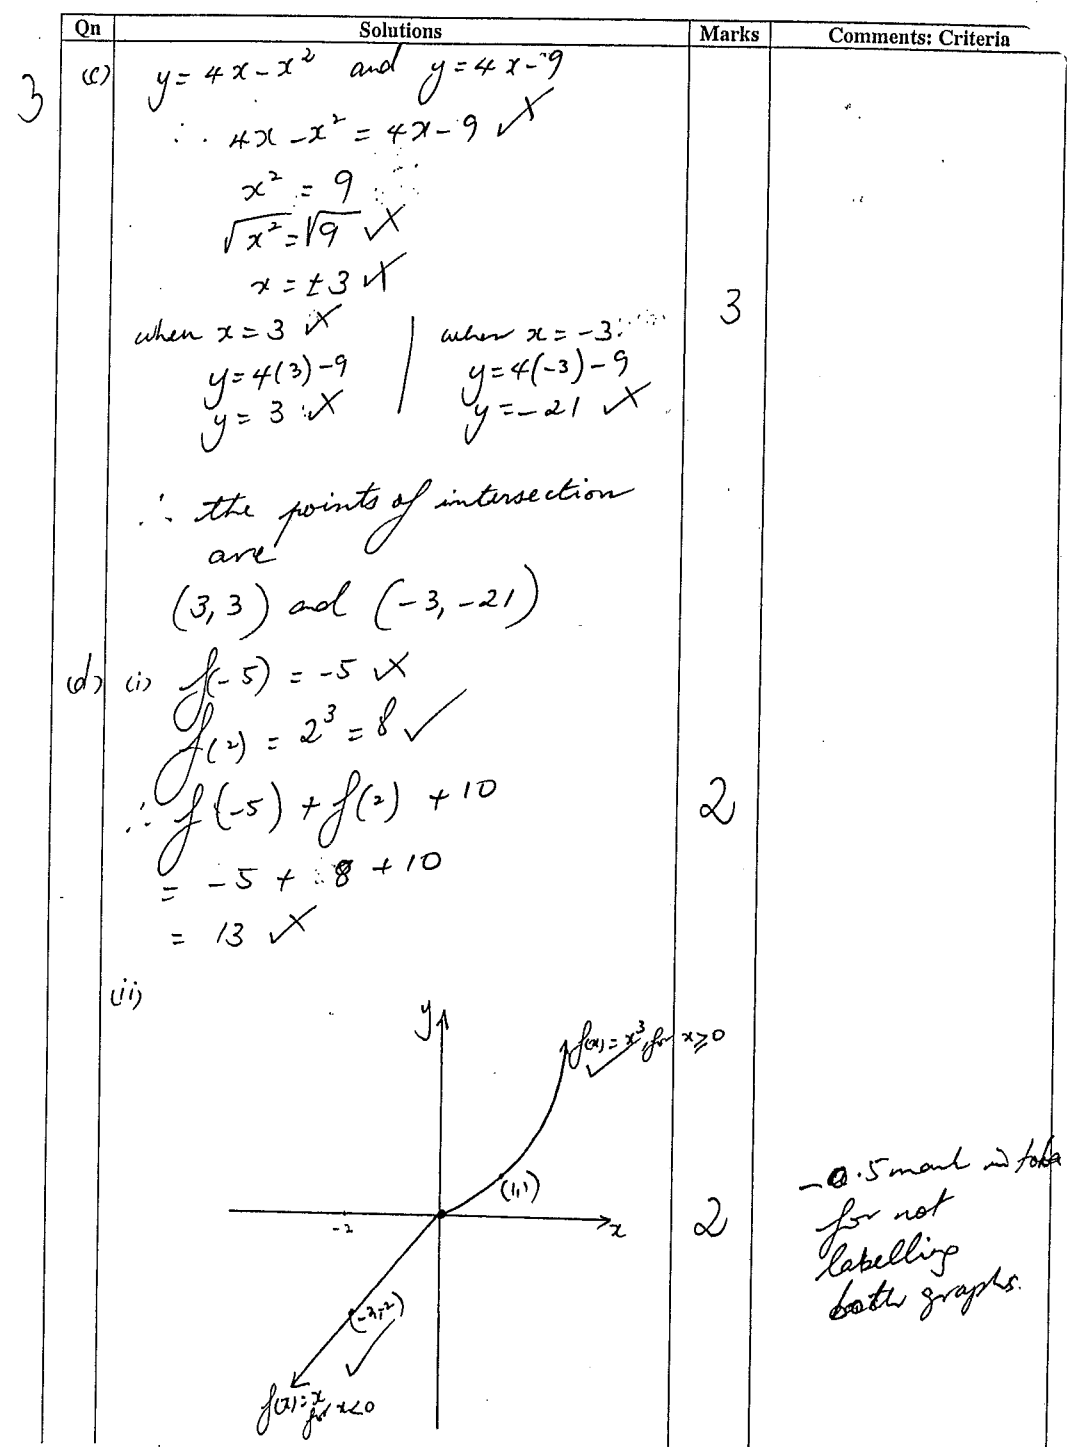 Qn Solutions Marks Comments: Criteria
3 (c) y = 4x - x² and y = 4x - 9
∴ 4x - x² = 4x - 9
x² = 9
√x² = √9
x = ±3
when x = 3 when x = -3
y = 4(3) - 9 y = 4(-3) - 9
y = 3 y = -21
3
∴ the points of intersection
are
(3, 3) and (-3, -21)
(d) (i) f(-5) = -5
f(2) = 2³ = 8
∴ f(-5) + f(2) + 10
2
= -5 + 8 + 10
= 13
(ii)
y
f(x) = x³, for x ≥ 0
(1,1)
-2
x
2
(-2,-2)
f(x) = x
for x < 0
-0.5 mark in total
for not
labelling
both graphs.